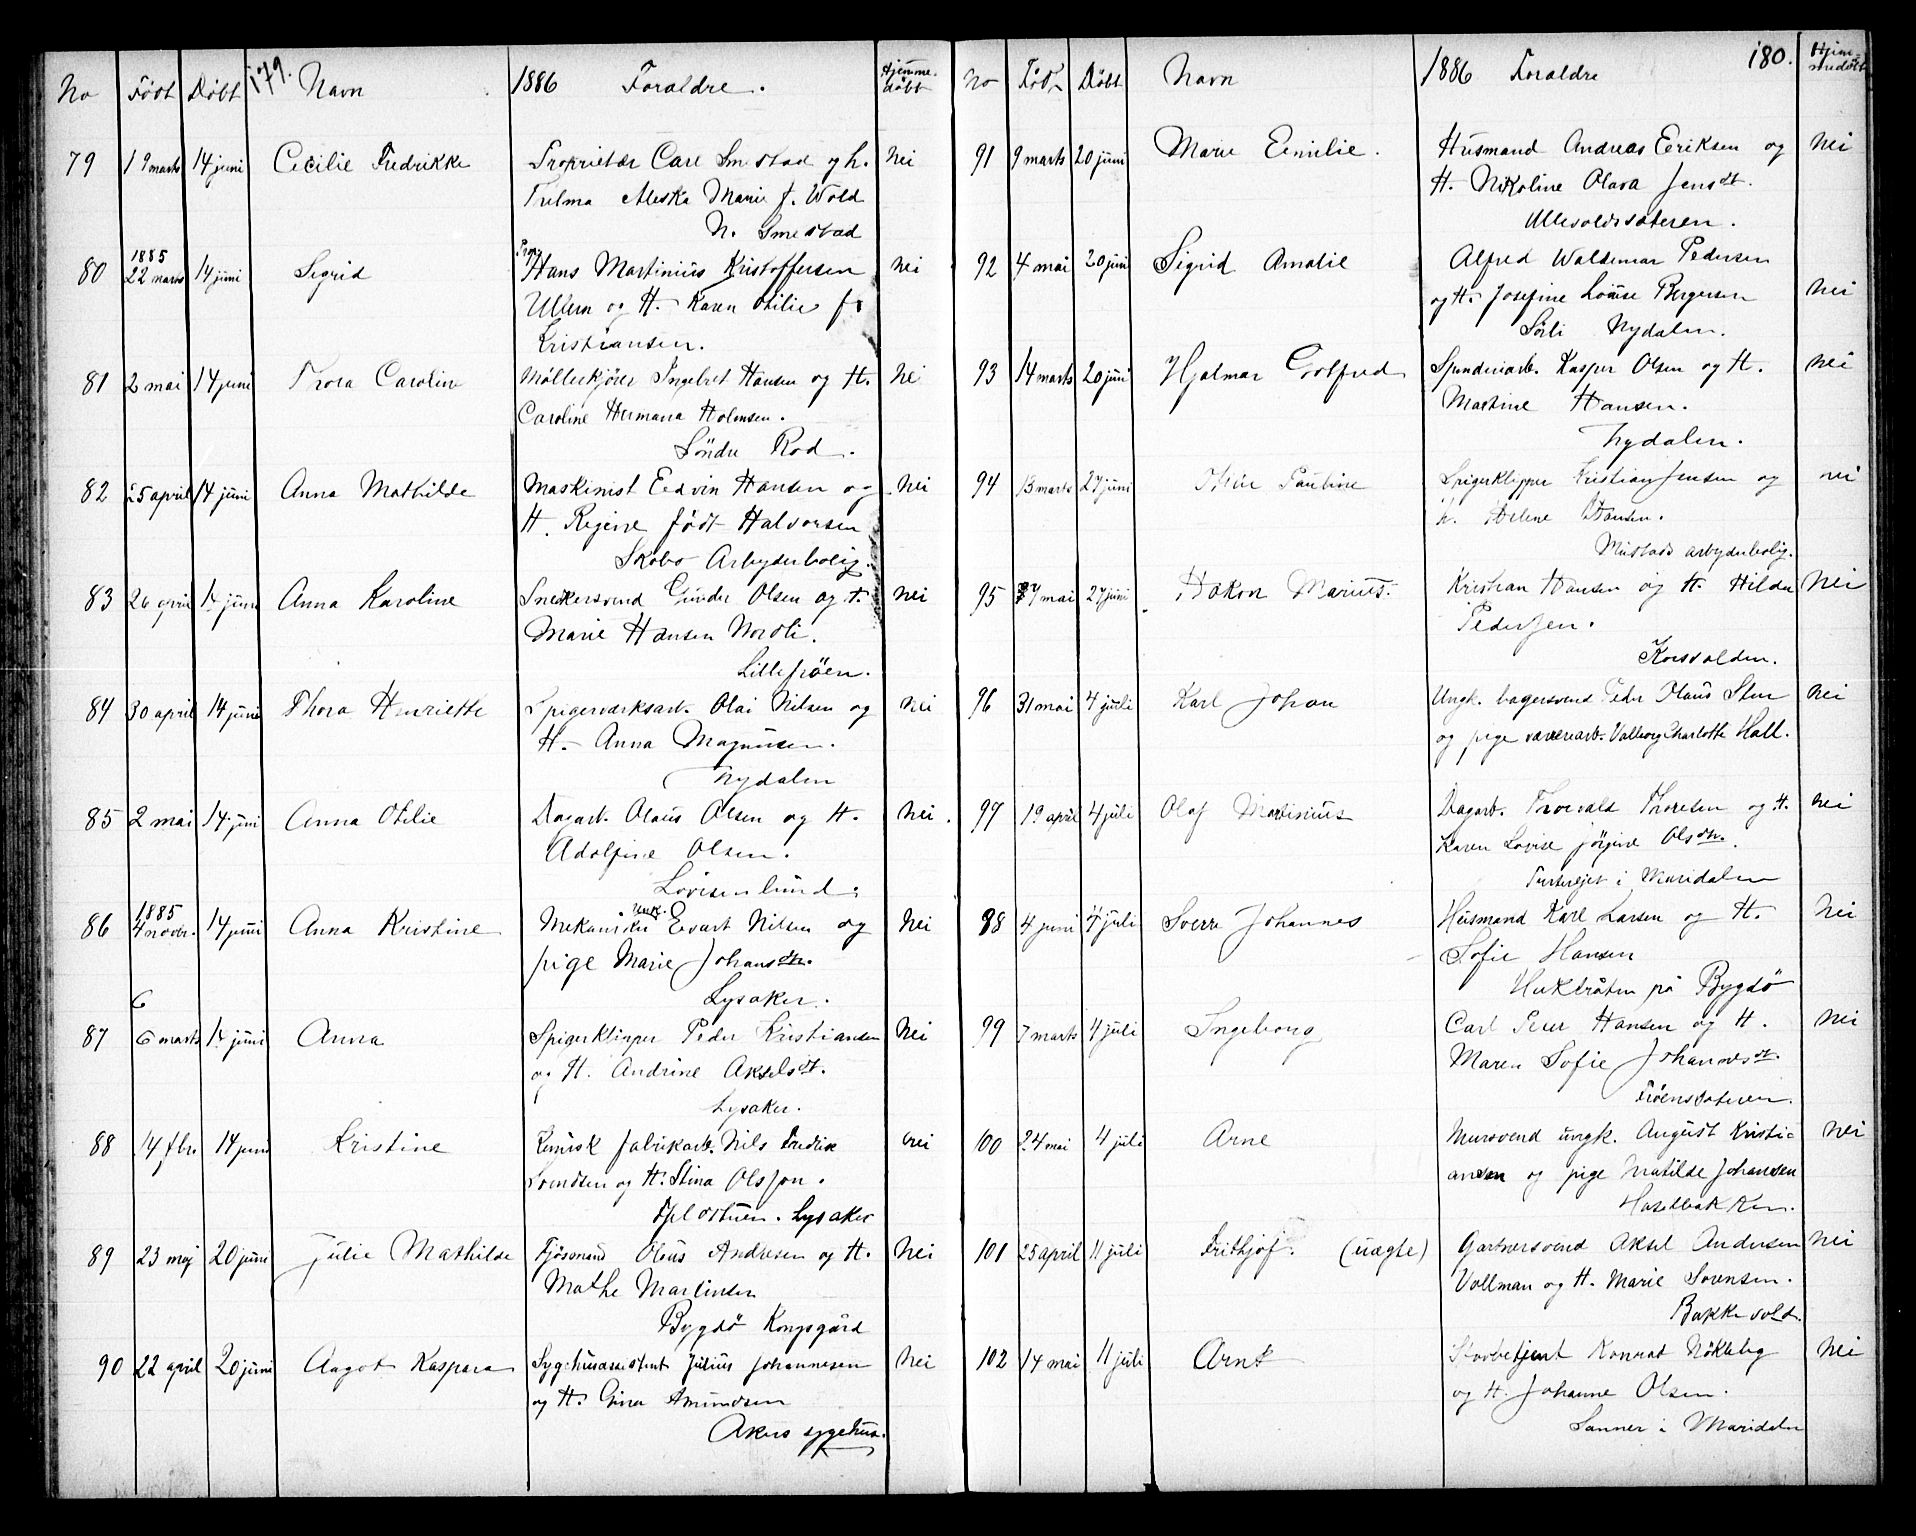 179.
No Född Döbt Navn 1886 Foraldre. Hjemmedöbt
79 19 marts 14 juni Cecilie Fredrikke Proprietær Carl Smestad og h. Nei
Marie f. Wold
N. Smestad
80 1885 22 marts 14 juni Sigrid Hans Martinius Kristoffersen Nei
Ullern og H. Karen Otilie f.
Kristiansen.
81 2 mai 14 juni Thora Caroline Möllerkjörer Ingebret Hansen og H. Nei
Caroline Hermana Holmsen.
Söndre Rod.
82 25 april 14 juni Anna Mathilde Maskinist Edvin Hansen og Nei
H. Regine födt Halvorsen
Skobo Arbyderbolig.
83 26 april 14 juni Anna Karoline Snekersvend Gunder Olsen og H. Nei
Marie Hansen Nordli.
Lillefröen.
84 30 april 14 juni Thora Henriette Spigerværksarb. Olai Nilsen og Nei
H. Anna Magnusen.
Nydalen
85 2 mai 14 juni Anna Otilie Dagarb. Olaus Olsen og H. Nei.
Adolfine Olsen.
Lovisenlund.
86 1885 4 novbr. 14 juni Anna Kristine Mekaniker Unk. Evart Nilsen og Nei
pige Marie Johansdtr.
Lysaker.
6
87 6 marts 14 juni Anna Spigerklipper Peder Kristiansen Nei
og H. Andrine Akselsdt.
Lysaker.
88 14 fbr. 14 juni Kristine Kemisk fabrikarb. Nils Fredrik nei
Svendsen og H. Stina Olsson.
Lysaker
89 23 maj 20 juni Julie Mathilde Fjösmand Olaus Andresen og H. Nei
Mathe Martinsen
Bygdö Kongsgård
90 22 april 20 juni Aagot Kaspara Sygehusassistent Julius Johannesen Nei
og H. Gina Amundsen
Akers sygehus.
180.
No Föd. Döbt Navn 1886 Foraldre
91 9 marts 20 juni Marie Emilie. Husmand Andreas Eriksen og Nei
H. Nikoline Olava Jensdt.
Ullevoldsæteren.
92 4 mai 20 juni Sigrid Amalie Alfred Waldemar Pedersen
og H. Josefine Louise Bergersen Nei
Sörli Nydalen.
93 14 marts 20 juni Hjalmar Gotfred Spinderiarb. Kasper Olsen og H. Nei
Martine Hansen.
Nydalen.
94 13 marts 27 juni Pauline Spigerklipper Kristian Jensen og nei
h. Helene Hansen.
Mustads arbyderbolig.
95 27 mai 27 juni Hakon Marius. Kristian Hansen og H. Hilda Nei
Pedersen.
Korsvolden.
96 31 mai 4 juli Karl Johan Ungk. bagersvend Peder Olaus Nei
og pige væveriarb. Valborg Charlotte Hall.
97 19 april 4 juli Olaf Martinius Dagarb. Thorvald Thoresen og H. Nei
Karen Lovise Jörgine Olsdtr.
i Maridalen
98 4 juni 4 juli Sverre Johannes Husmand Karl Larsen og H. Nei
Sofie Hansen
på Bygdö
99 7 marts 4 juli Ingeborg Carl Peter Hansen og H. Nei
Maren Sofie Johannesdt.
Fröensvateren.
100 24 mai 4 juli Arne Mursvend ungk. August Kristi- Nei
ansen og pige Matilde Johansen
Haselbakken.
101 25 april 11 juli Frithjof. (uægte) Gartnersvend Aksel Andersen Nei
Vollman og H. Marie Sorensen.
Bakkevold.
102 14 mai 11 juli Arnt Stovbetjent Konrad Nökleby Nei
og H. Johanne Olsen.
Sanner i Maridalen